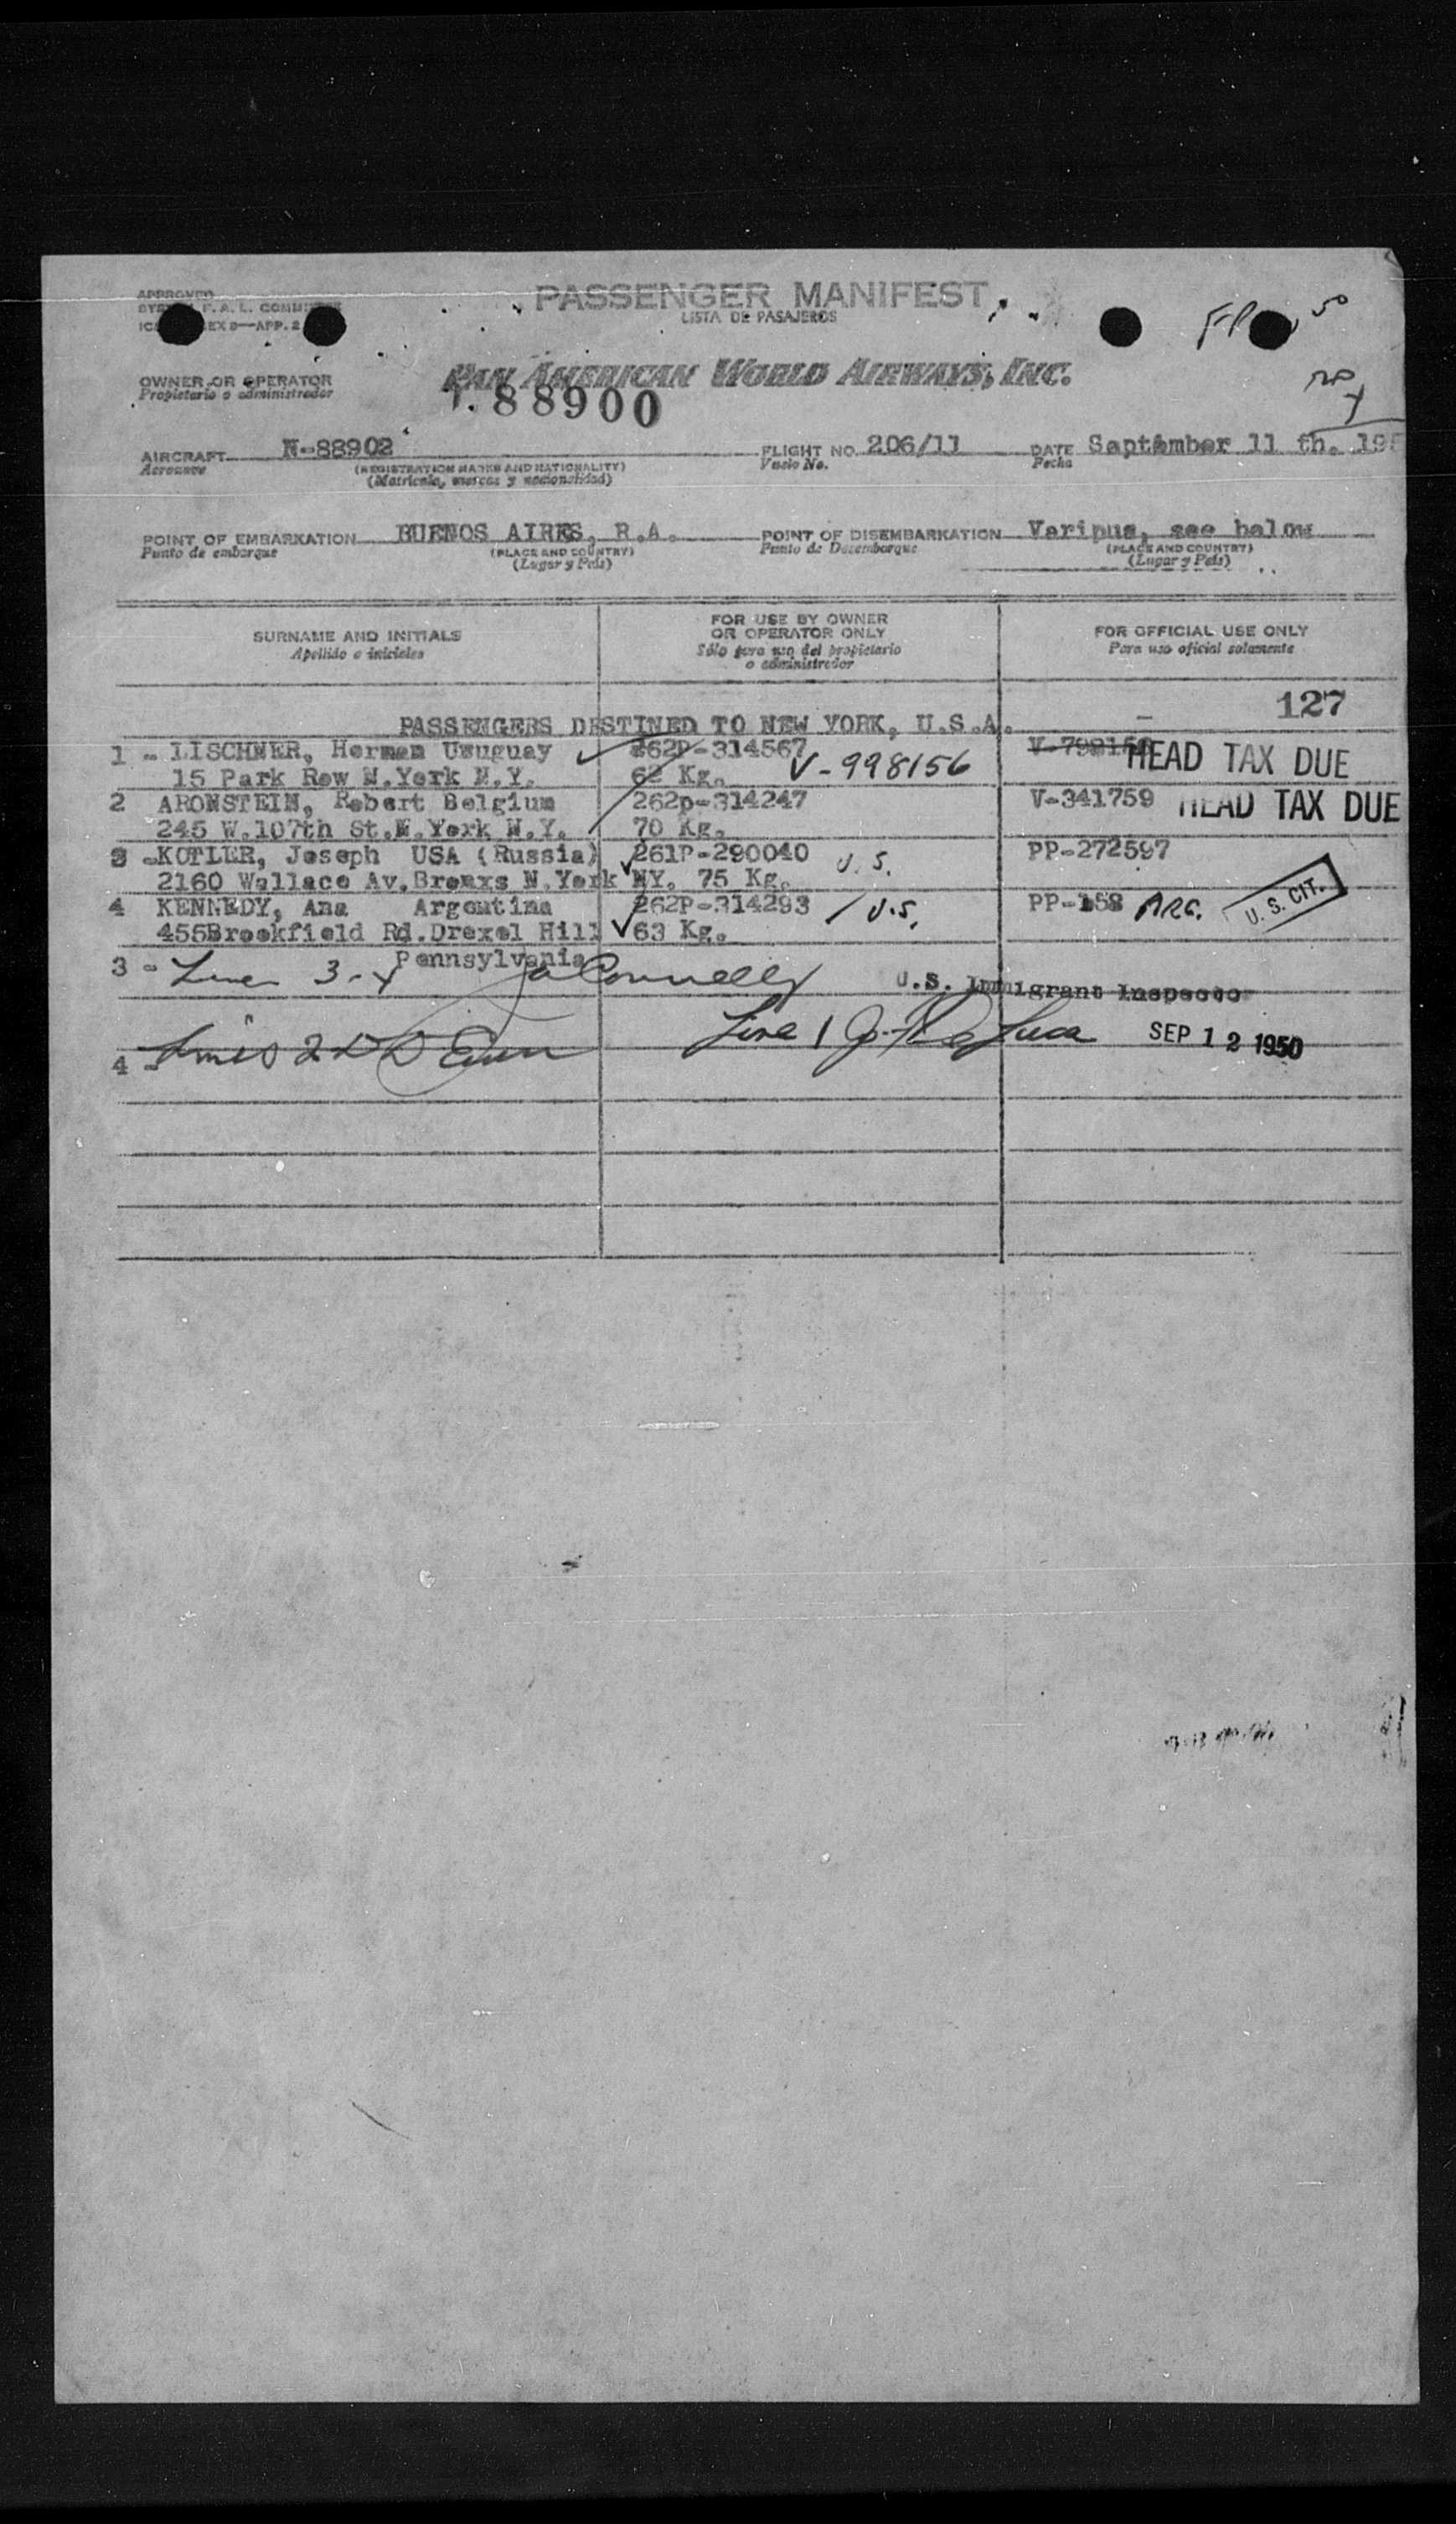 APPROVED
F. A. L.
EX 9—APP. 2
PASSENGER MANIFEST
LISTA DE PASAJEROS
OWNER OR OPERATOR
Propietario o administrador
PAN AMERICAN WORLD AIRWAYS, INC.
88900
AIRCRAFT N-88902 FLIGHT NO. 206/11 DATE September 11 th. 195
Aeronave (REGISTRATION MARKS AND NATIONALITY) Vuelo No. Fecha
(Matricula, marcas y nacionalidad)
POINT OF EMBARKATION BUENOS AIRES, R.A. POINT OF DISEMBARKATION Varipus, see below
Punto de embarque (PLACE AND COUNTRY) Punto de Desembarque (PLACE AND COUNTRY)
(Lugar y País) (Lugar y País)
SURNAME AND INITIALS
Apellido e iniciales
FOR USE BY OWNER
OR OPERATOR ONLY
Sólo para uso del propietario
o administrador
FOR OFFICIAL USE ONLY
Para uso oficial solamente
127
PASSENGERS DESTINED TO NEW YORK, U.S.A.
1 - LISCHNER, Herman Uruguay 262P-314567 HEAD TAX DUE
15 Park Row N.York N.Y. 62 Kg. V-998156
2 ARONSTEIN, Robert Belgium 262p-314247 V-341759 HEAD TAX DUE
245 W.107th St.N.York N.Y. 70 Kg.
3 - KOTLER, Joseph USA (Russia) 261P-290040 U.S. PP-272597
2160 Wallace Av.Bronxs N.York NY. 75 Kg.
4 KENNEDY, Ana Argentina 262P-314293 / U.S. PP-158 ARG. U. S. CIT.
455Brookfield Rd.Drexel Hill 63 Kg.
Pennsylvania
3 - Line 3-4 Connelly U.S. Immigrant Inspecto
4 - Lines 2 Line 1 SEP 12 1950